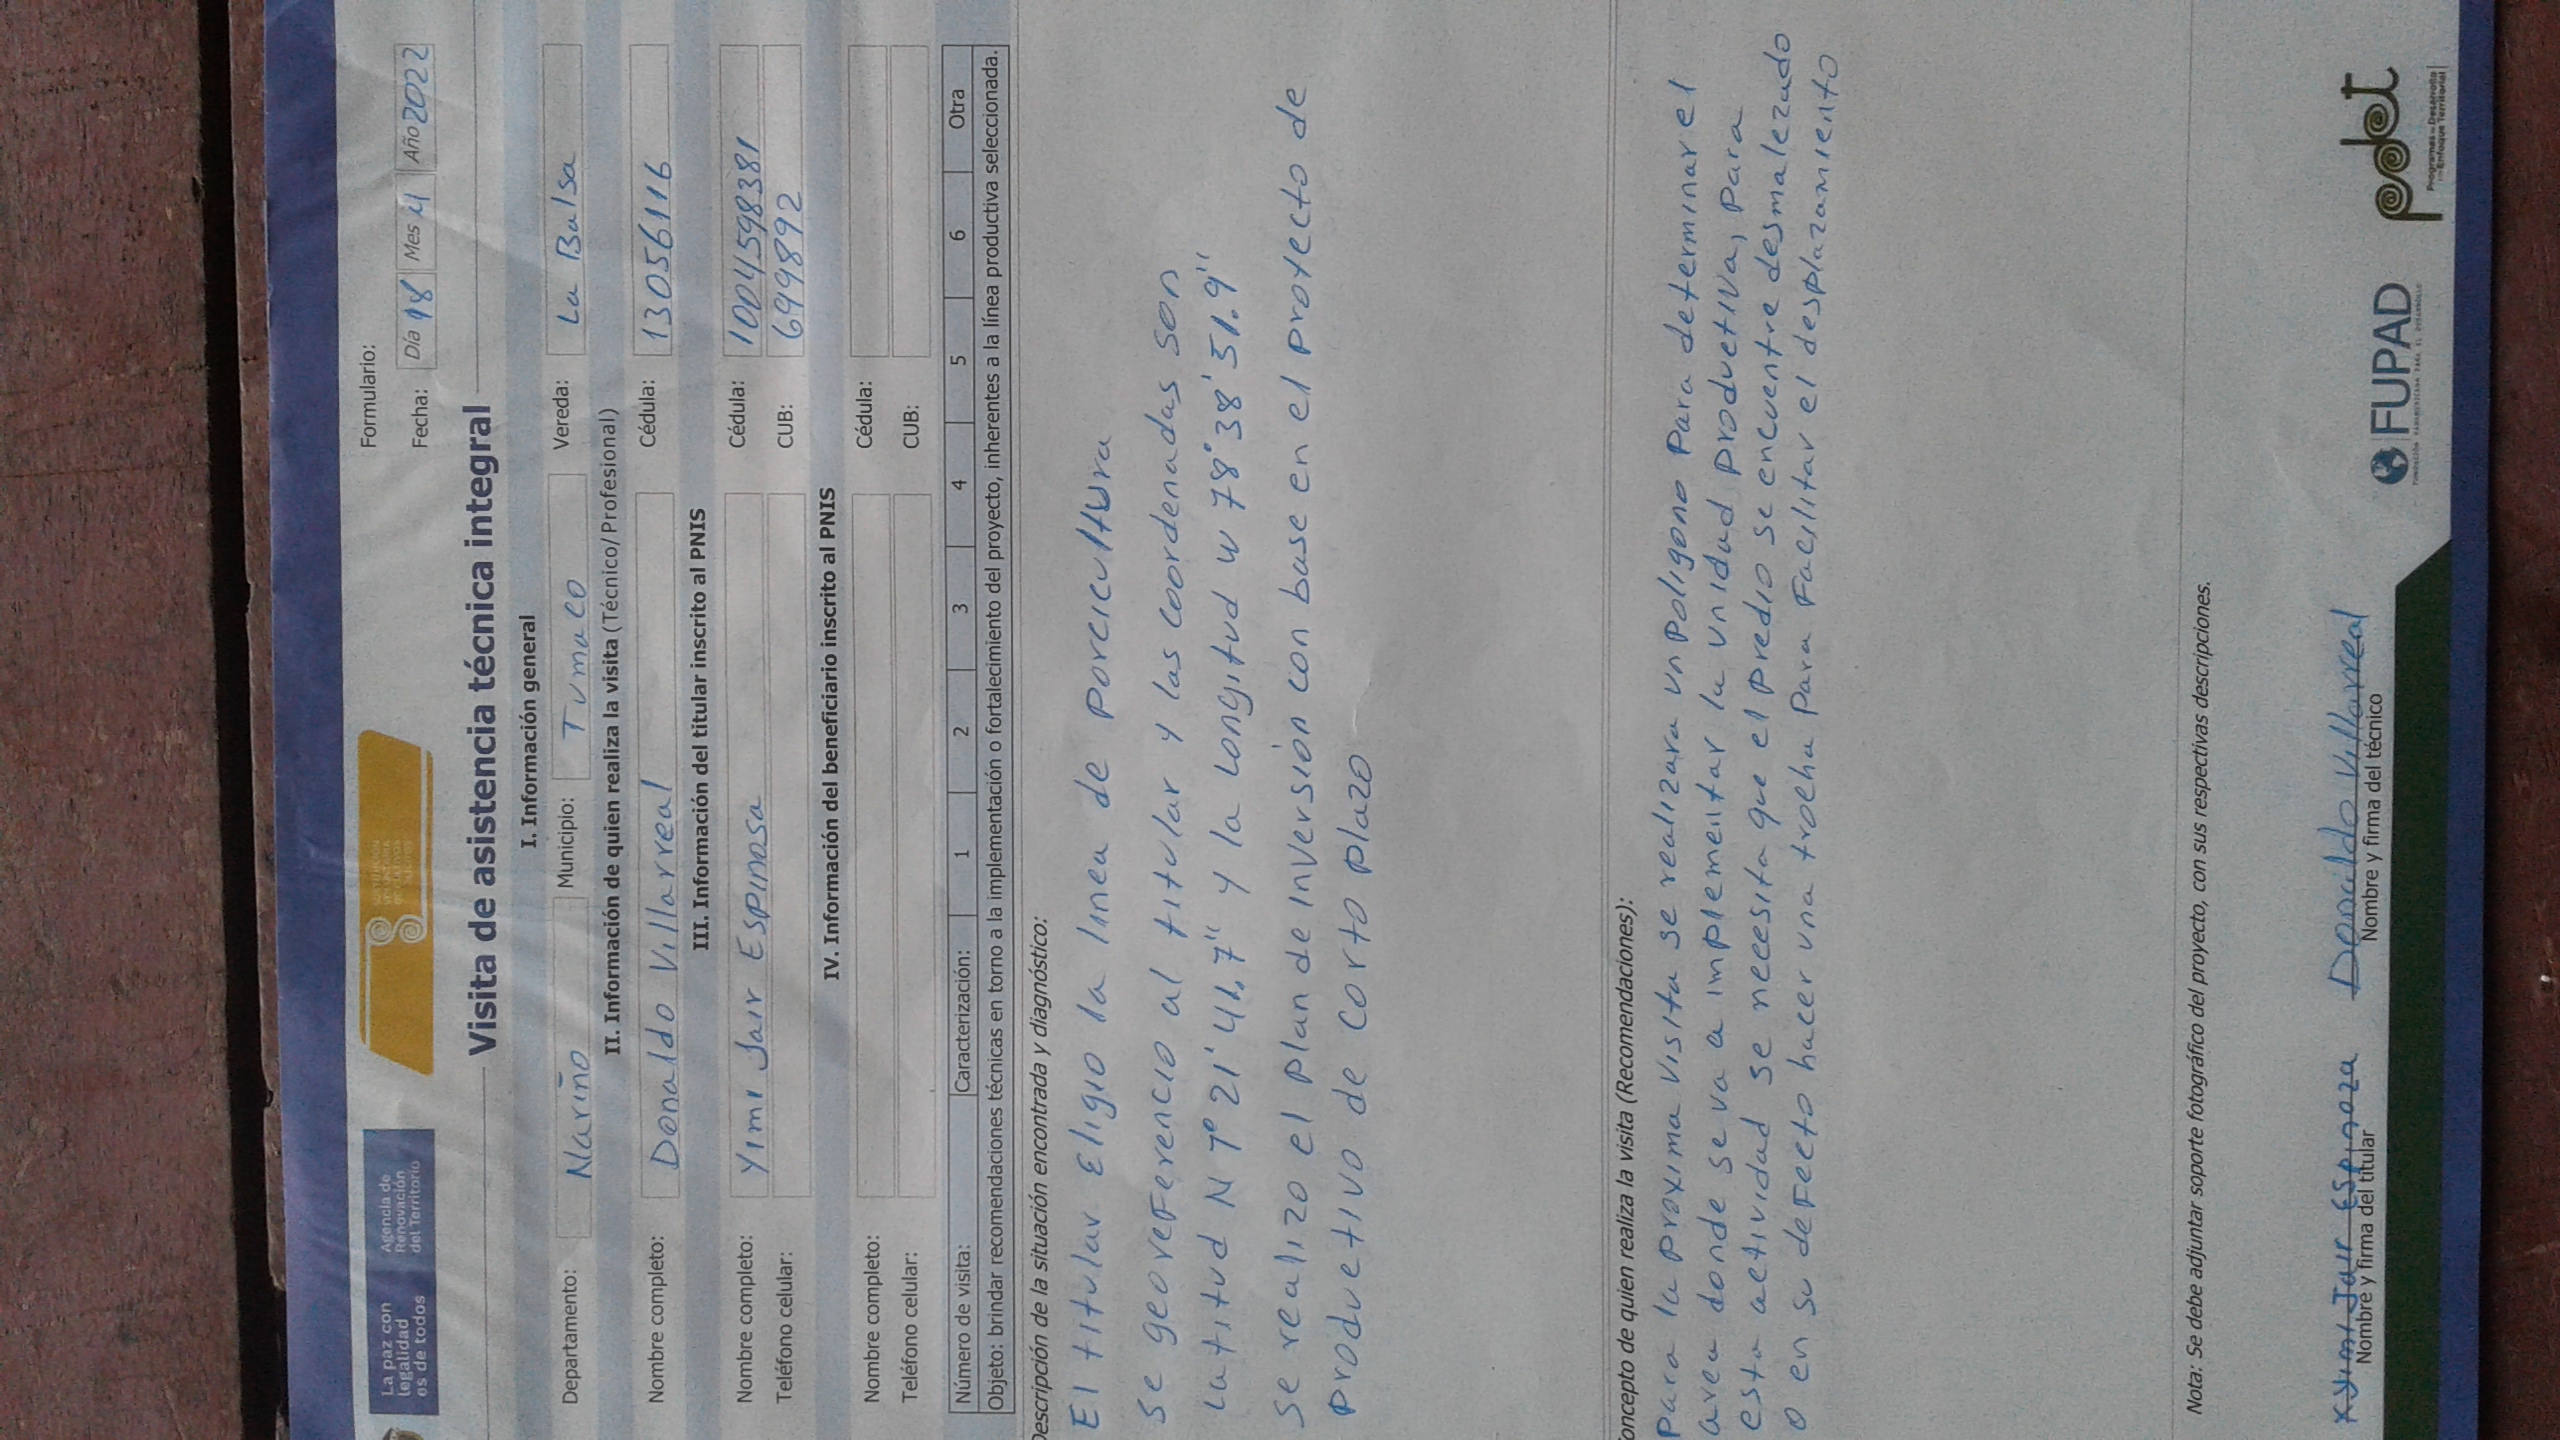 La paz con
legalidad
es de todos
Agencia de
Renovación
del Territorio
Formulario:
Fecha: Día 18 Mes 4 Año 2022
Visita de asistencia técnica integral
I. Información general
Departamento: Nariño Municipio: Tumaco Vereda: La Balsa
II. Información de quien realiza la visita (Técnico/Profesional)
Nombre completo: Donaldo Villarreal Cédula: 13056116
III. Información del titular inscrito al PNIS
Nombre completo: Yimi Jair Espinosa Cédula: 1004598381
Teléfono celular: CUB: 6998992
IV. Información del beneficiario inscrito al PNIS
Nombre completo: Cédula:
Teléfono celular: CUB:
Número de visita: Caracterización: 1 2 3 4 5 6 Otra
Objeto: brindar recomendaciones técnicas en torno a la implementación o fortalecimiento del proyecto, inherentes a la línea productiva seleccionada.
Descripción de la situación encontrada y diagnóstico:
El titular Eligio la linea de Porcicultura
se georeferencio al titular y las coordenadas son
Latitud N 1° 21' 41.7" y la Longitud W 78° 38' 51.9"
se realizo el plan de inversión con base en el protecto de
productivo de corto plazo
Concepto de quien realiza la visita (Recomendaciones):
Para la proxima visita se realizara un poligono Para determinar el
area donde se va a implementar la unidad productiva, Para
esta actividad se necesita que el predio se encuentre desmalezado
o en su defecto hacer una trocha Para Facilitar el desplazamiento
Nota: Se debe adjuntar soporte fotográfico del proyecto, con sus respectivas descripciones.
x Yimi Jair Espinoza Donaldo Villarreal
Nombre y firma del titular Nombre y firma del técnico
FUPAD
FUNDACIÓN PANAMERICANA PARA EL DESARROLLO
pdet
Programas de Desarrollo
con Enfoque Territorial